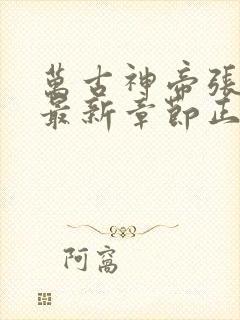 萬古神帝張
最新章節正
阿窩